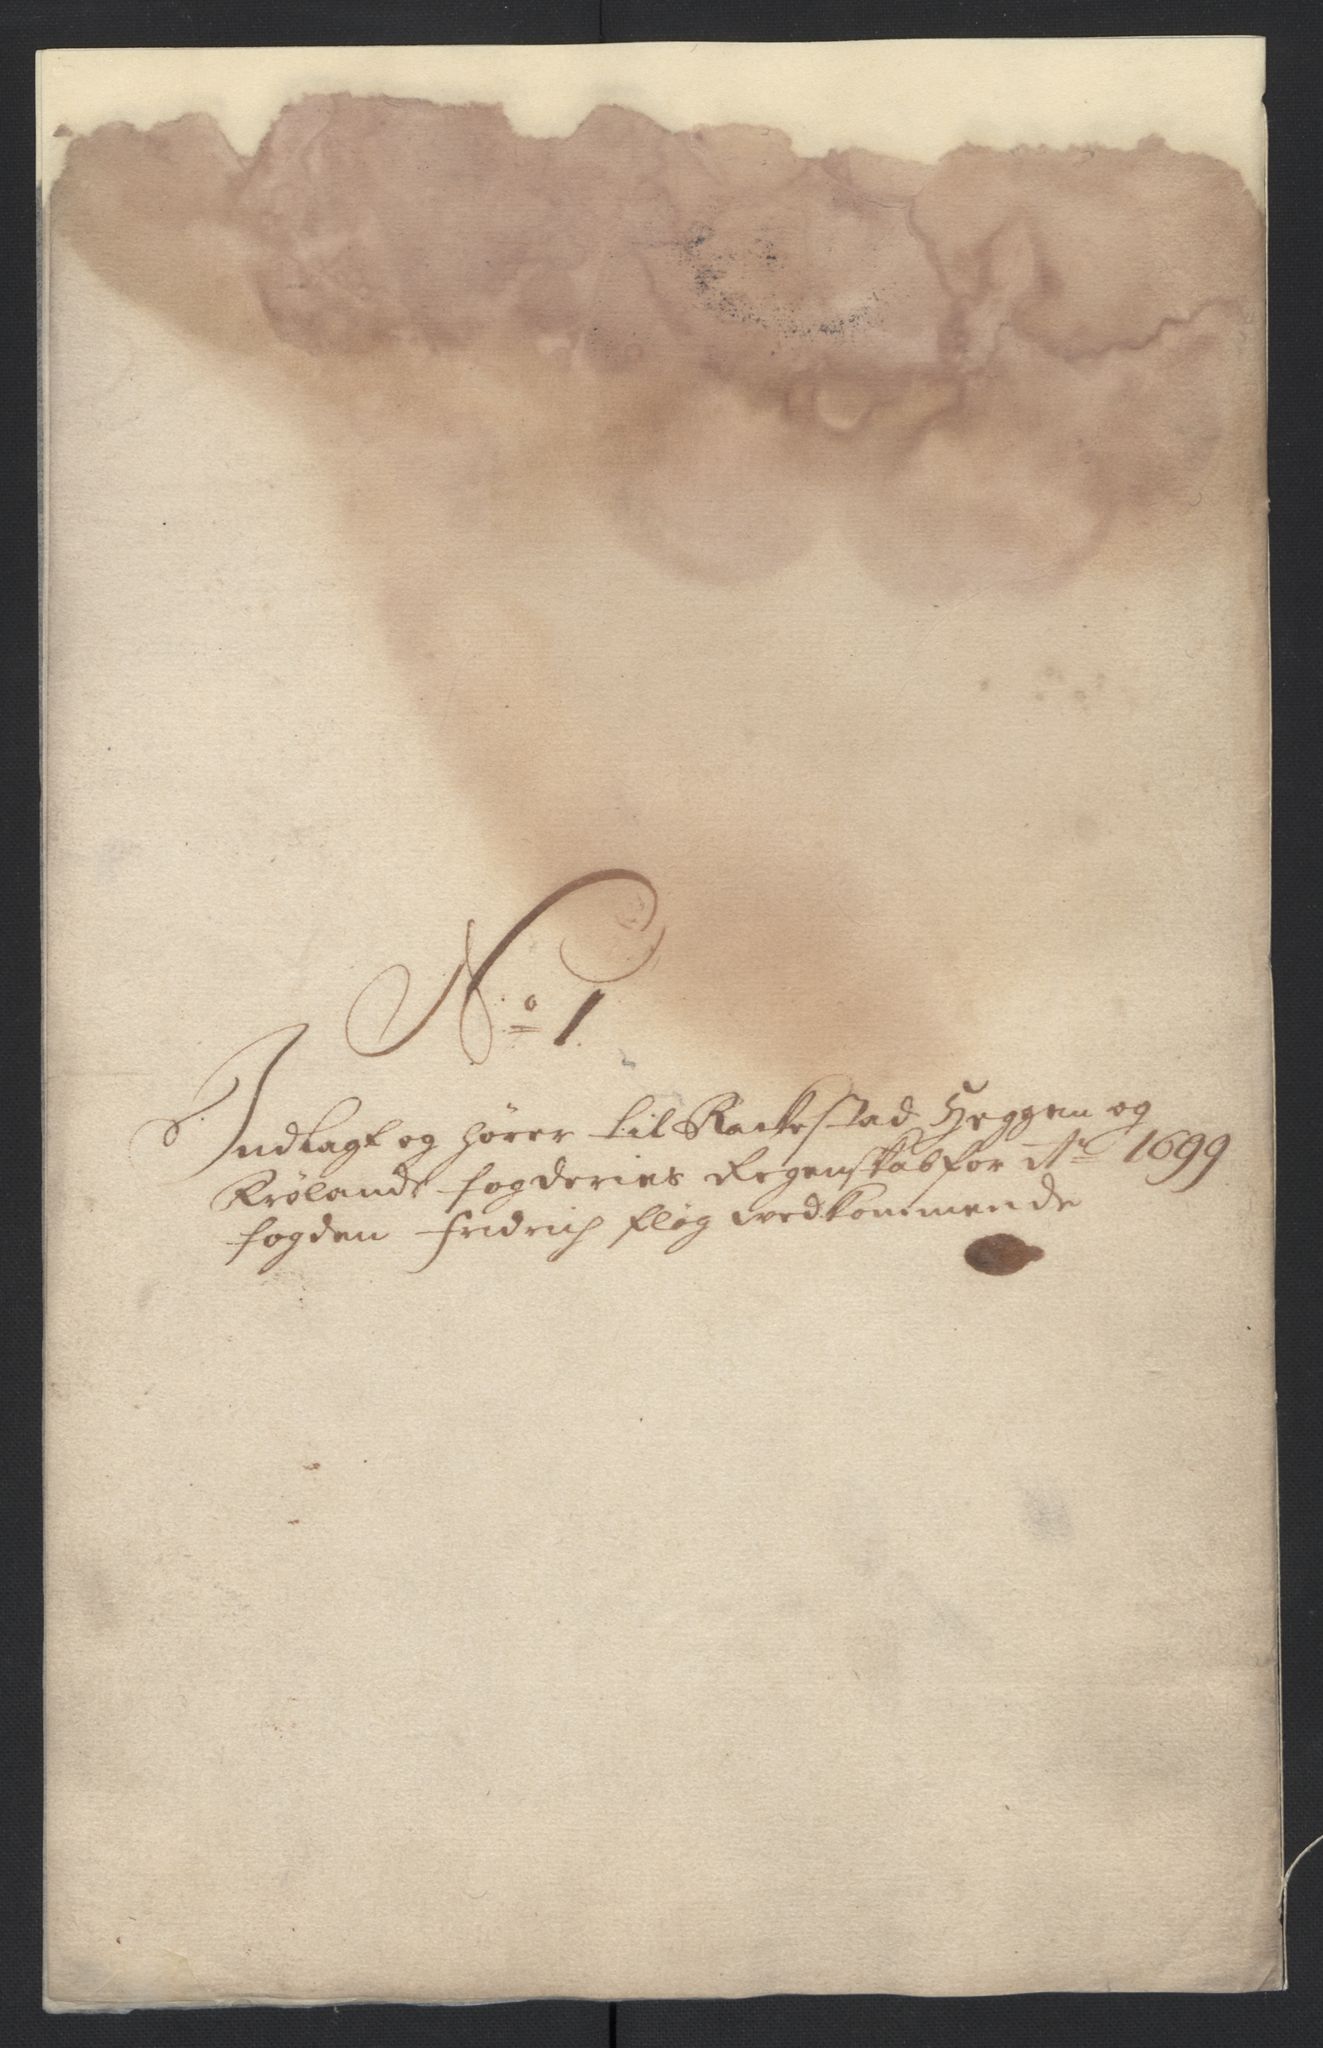 No 1
Indlagt og hører til Rackestad Heggen og
Frølands fogderies Regenskab for Ao 1699
fogden Fridrich Fløg vedkommende